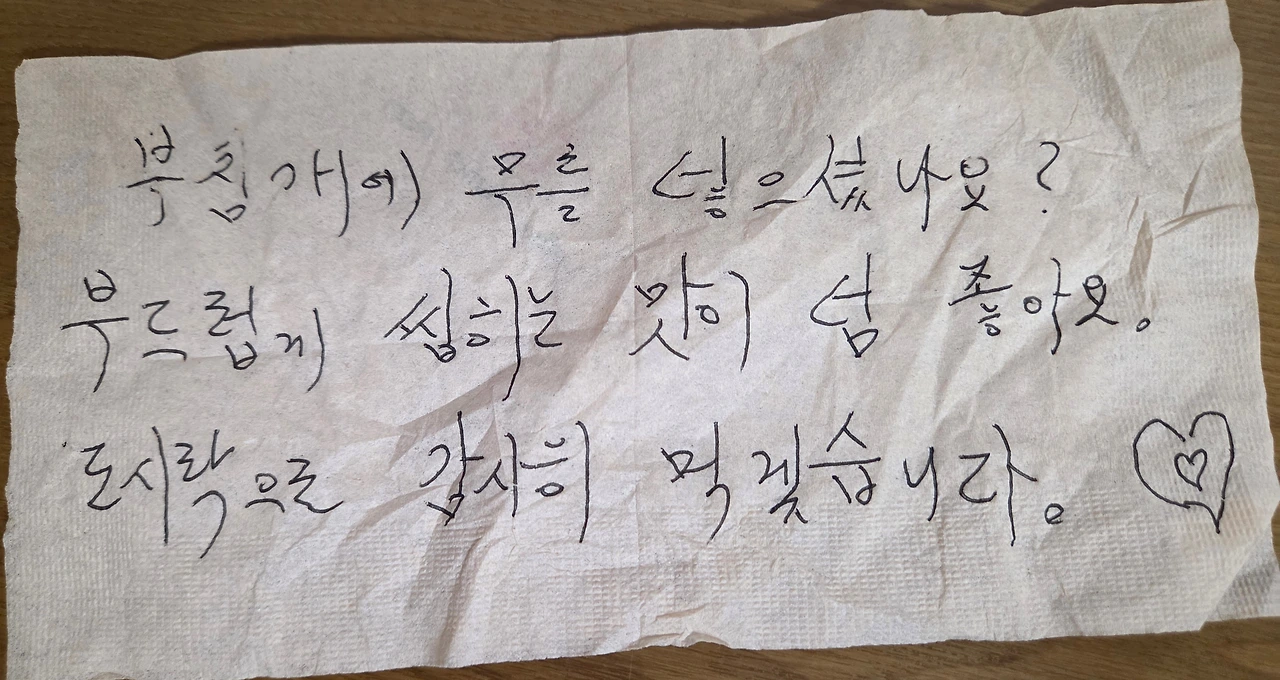 부침개에 무를 넣으셨나요?
부드럽게 씹히는 맛이 넘 좋아요.
도시락으로 감사히 먹겠습니다.